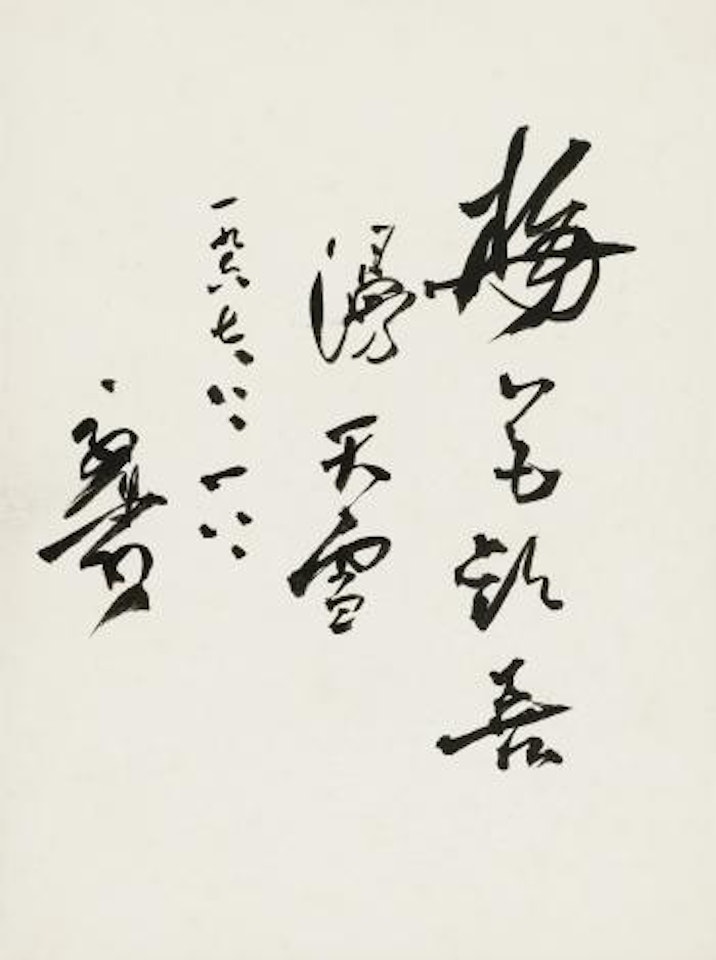 梅花欢喜
漫天雪
一九六七、八、一八、